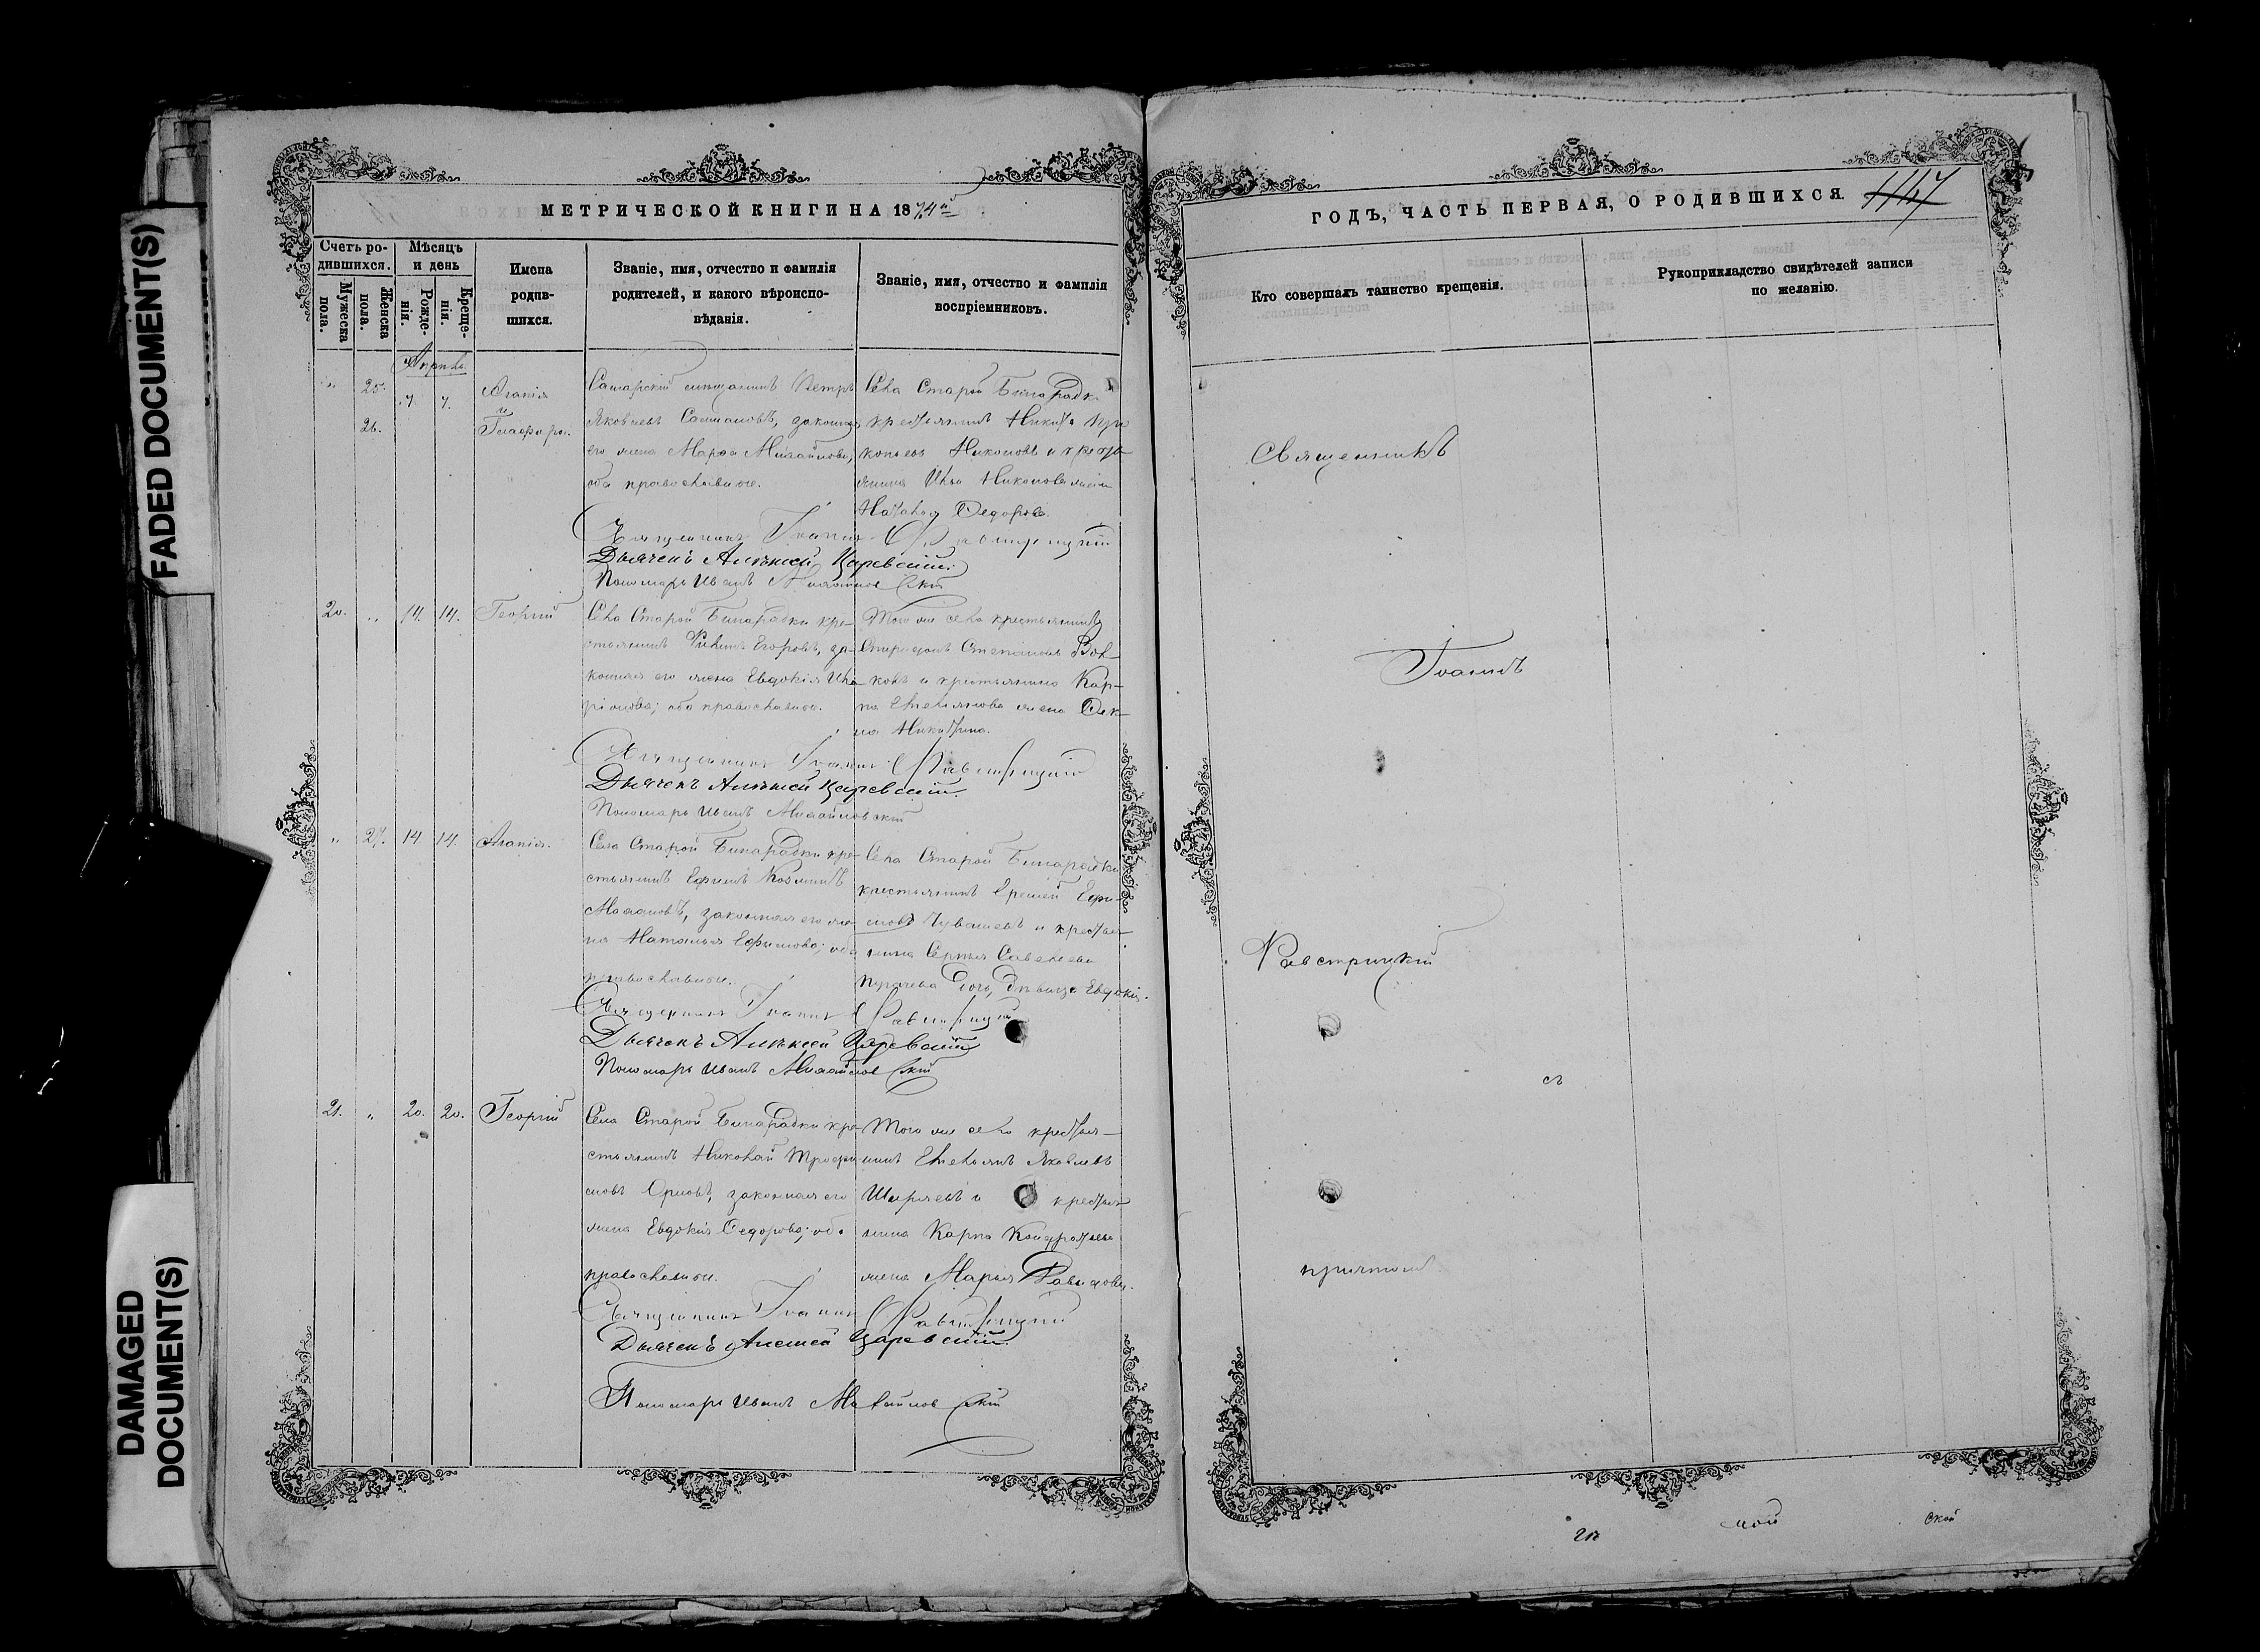 FADED DOCUMENT(S)
DAMAGED
DOCUMENT(S)
МЕТРИЧЕСКОЙ КНИГИ НА 1874й
Счетъ ро-
дившихся.
Мужеска
пола.
Женска
пола.
Мѣсяцъ
и день
Рожде-
нія.
Креще-
нія.
Имена
родив-
шихся.
Званіе, имя, отчество и фамилія
родителей, и какого вѣроиспо-
вѣданія.
Званіе, имя, отчество и фамилія
воспріемниковъ.
Апрѣль
„ 25. 7. 7. Агапія
и
26. Глафира.
Самарскій мѣщанинъ Петръ
Яковлевъ законная
его жена Марья Михайлова,
оба православные.
Села Старой Бинарадки
крестьянинъ Никита Про
копьевъ Никоновъ и кресть
янина Ильи Никонова жена
Наталья Федорова.
Священникъ Іоаннъ Фавстрицкій
Дьячекъ Алексѣй Царевскій
Пономарь Иванъ Михайловскій
20. „ 14. 14. Георгій
Села Старой Бинарадки кре-
стьянинъ Филипъ Егоровъ, за-
конная его жена Евдокія Ила-
ріонова; оба православные.
Того же села крестьянинъ
Спиридонъ Степановъ Вол
ковъ и крестьянина Кар-
па Емельянова жена Фек-
ла Никитина.
Священникъ Іоаннъ Фавстрицкій
Дьячекъ Алексѣй Царевскій
Пономарь Иванъ Михайловскій
„ 27. 14 14. Агапія.
Села Старой Бинарадки кре-
стьянинъ Ефимъ Козминъ
законная его же-
на Наталья Ефимова; оба
православные.
Села Старой Бинарадки
крестьянинъ Еремей Ефи-
мовъ Чувашевъ и кресть
янина Сергѣя Савельева
дочь, дѣвица Евдокія.
Священникъ Іоаннъ Фавстрицкій
Дьячекъ Алексѣй Царевскій
Пономарь Иванъ Михайловскій
21. „ 20. 20. Георгій
Села Старой Бинарадки кре-
стьянинъ Николай Трофи-
мовъ Орловъ, законная его
жена Евдокія Федорова; оба
православные.
Того же села крестья-
нинъ Емельянъ Яковлевъ
Ширяевъ и крестья
нина Карпа Кондратьева
жена Марья Давыдова.
Священникъ Іоаннъ Фавстрицкій
Дьячекъ Алексѣй Царевскій
Пономарь Иванъ Михайловскій
ГОДЪ, ЧАСТЬ ПЕРВАЯ, О РОДИВШИХСЯ.
Кто совершалъ таинство крещенія.
Рукоприкладство свидѣтелей записи
по желанію.
Священникъ
Іоаннъ
Фавстрицкій
съ
причтомъ
мой
ской